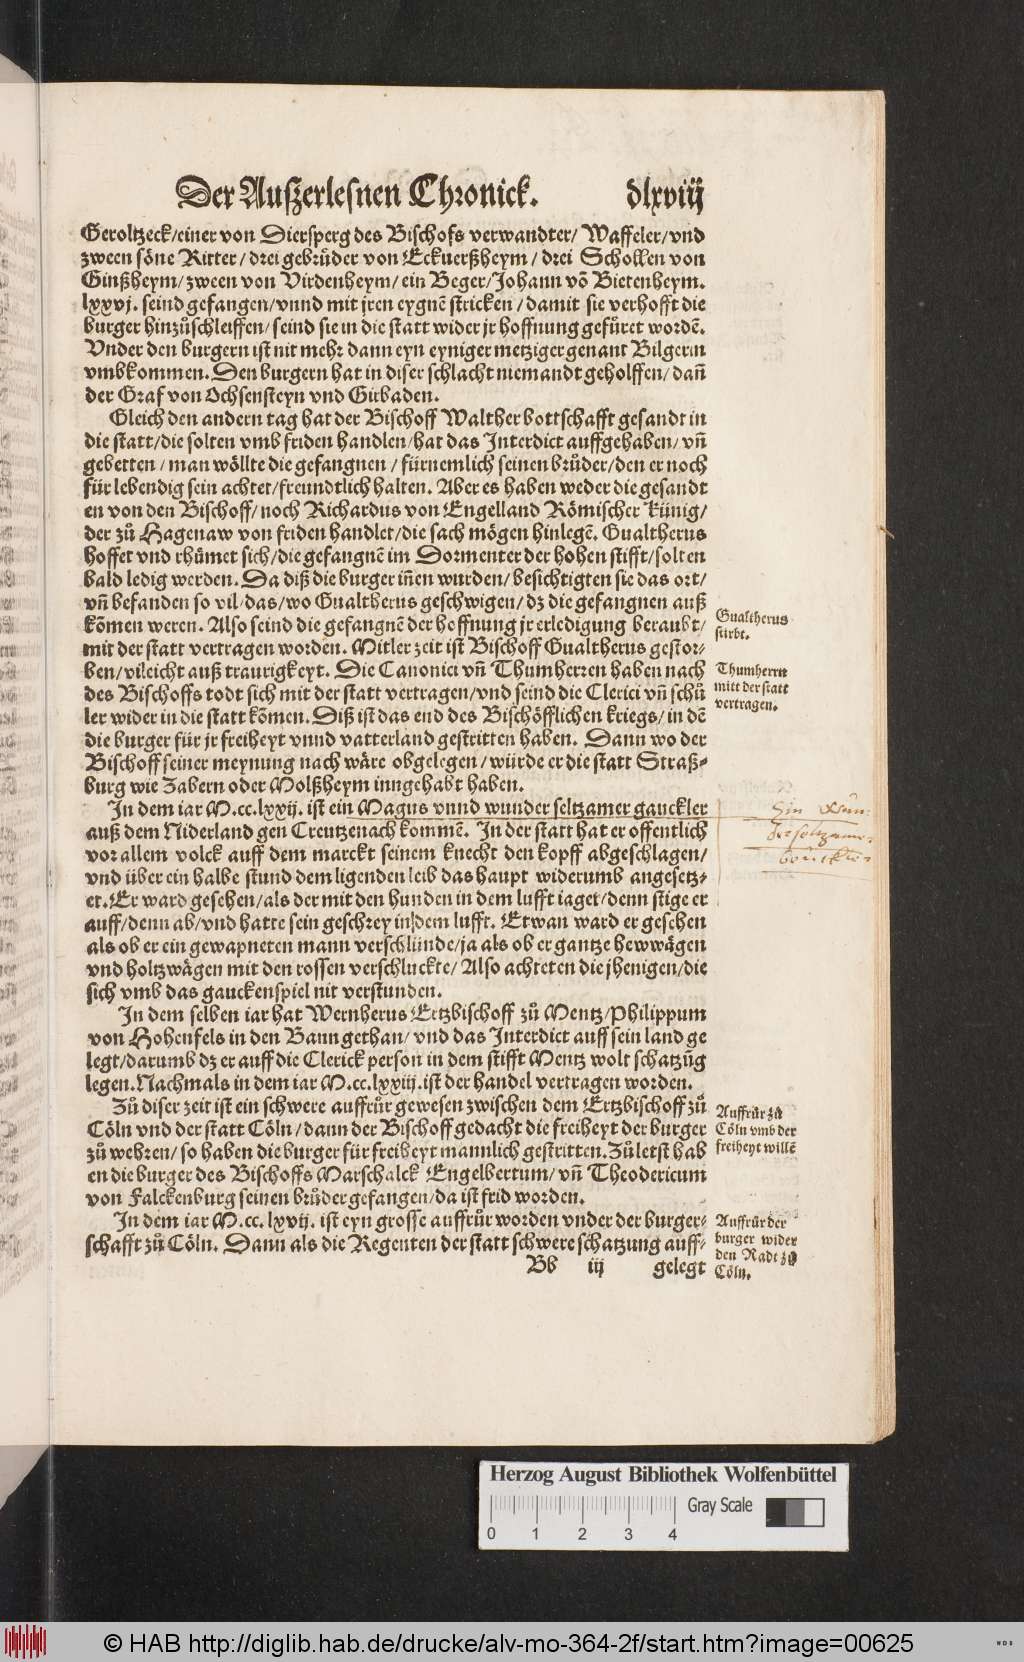 Der Außerlesnen Chronick. dlxviij
Geroltzeck/einer von Diersperg des Bischofs verwandter/ Waffeler/vnd
zween söne Ritter/ drei gebrůder von Eckuerßheym/ drei Schollen von
Ginßheym/ zween von Virdenheym/ ein Beger/Johann võ Bietenheym.
lxxvj. seind gefangen/vnnd mit jren eygnẽ stricken/ damit sie verhofft die
burger hinzůschleiffen/ seind sie in die statt wider jr hoffnung gefůret wordẽ.
Vnder den burgern ist nit mehr dann eyn eyniger metziger genant Bilgerin
vmbkommen. Den burgern hat in diser schlacht niemandt geholffen/ dañ
der Graf von Ochsensteyn vnd Girbaden.
Gleich den andern tag hat der Bischoff Walther bottschafft gesandt in
die statt/die solten vmb friden handlen/hat das Interdict auffgehaben/vñ
gebetten/man wöllte die gefangnen/ fürnemlich seinen brůder/den er noch
für lebendig sein achtet/freundtlich halten. Aber es haben weder die gesandt
en von den Bischoff/noch Richardus von Engelland Römischer künig/
der zů Hagenaw von friden handlet/die sach mögen hinlegẽ. Gualtherus
hoffet vnd rhůmet sich/die gefangnẽ im Dormenter der hohen stifft/solten
bald ledig werden. Da diß die burger iñen wurden/besichtigten sie das ort/
vñ befanden so vil/das/wo Gualtherus geschwigen/dz die gefangnen auß
kõmen weren. Also seind die gefangnẽ der hoffnung jr erledigung beraubt/
mit der statt vertragen worden. Mitler zeit ist Bischoff Gualtherus gestor-
ben/vileicht auß traurigkeyt. Die Canonici vñ Thumherren haben nach
des Bischoffs todt sich mit der statt vertragen/vnd seind die Clerici vñ schů
ler wider in die statt kõmen. Diß ist das end des Bischöfflichen kriegs/in dẽ
die burger für jr freiheyt vnnd vatterland gestritten haben. Dann wo der
Bischoff seiner meynung nach wäre obgelegen/würde er die statt Straß-
burg wie Zabern oder Molßheym inngehabt haben.
Gualtherus
stirbt.
Thumherrn
mitt der statt
vertragen.
In dem iar M.cc.lxxij. ist ein Magus vnnd wunder seltzamer gauckler
auß dem Niderland gen Creutzenach kommẽ. In der statt hat er offentlich
vor allem volck auff dem marckt seinem knecht den kopff abgeschlagen/
vnd über ein halbe stund dem ligenden leib das haupt widerumb angesetz-
et. Er ward gesehen/als der mit den hunden in dem lufft iaget/denn stige er
auff/denn ab/vnd hatte sein geschrey in dem lufft. Etwan ward er gesehen
als ob er ein gewapneten mann verschlünde/ja als ob er gantze hewwägen
vnd holtzwägen mit den rossen verschluckte/ Also achteten die jhenigen/die
sich vmb das gauckenspiel nit verstunden.
In dem selben iar hat Wernherus Ertzbischoff zů Mentz/Philippum
von Hohenfels in den Bann gethan/ vnd das Interdict auff sein land ge
legt/darumb dz er auff die Clerick person in dem stifft Mentz wolt schatzũg
legen. Nachmals in dem iar M.cc.lxxiij. ist der handel vertragen worden.
Zů diser zeit ist ein schwere auffrůr gewesen zwischen dem Ertzbischoff zů
Cöln vnd der statt Cöln/dann der Bischoff gedacht die freiheyt der burger
zů wehren/ so haben die burger für freiheyt mannlich gestritten. Zů letst hab
en die burger des Bischoffs Marschalck Engelbertum/ vñ Theodericum
von Falckenburg seinen brůder gefangen/da ist frid worden.
Auffrůr zů
Cöln vmb der
freiheyt willẽ
In dem iar M.cc. lxvij. ist eyn grosse auffrůr worden vnder der burger-
schafft zů Cöln. Dann als die Regenten der statt schwere schatzung auff-
Bb iij gelegt
Auffrůr der
burger wider
den Radt zů
Cöln.
Herzog August Bibliothek Wolfenbüttel
Gray Scale
0 1 2 3 4
© HAB http://diglib.hab.de/drucke/alv-mo-364-2f/start.htm?image=00625